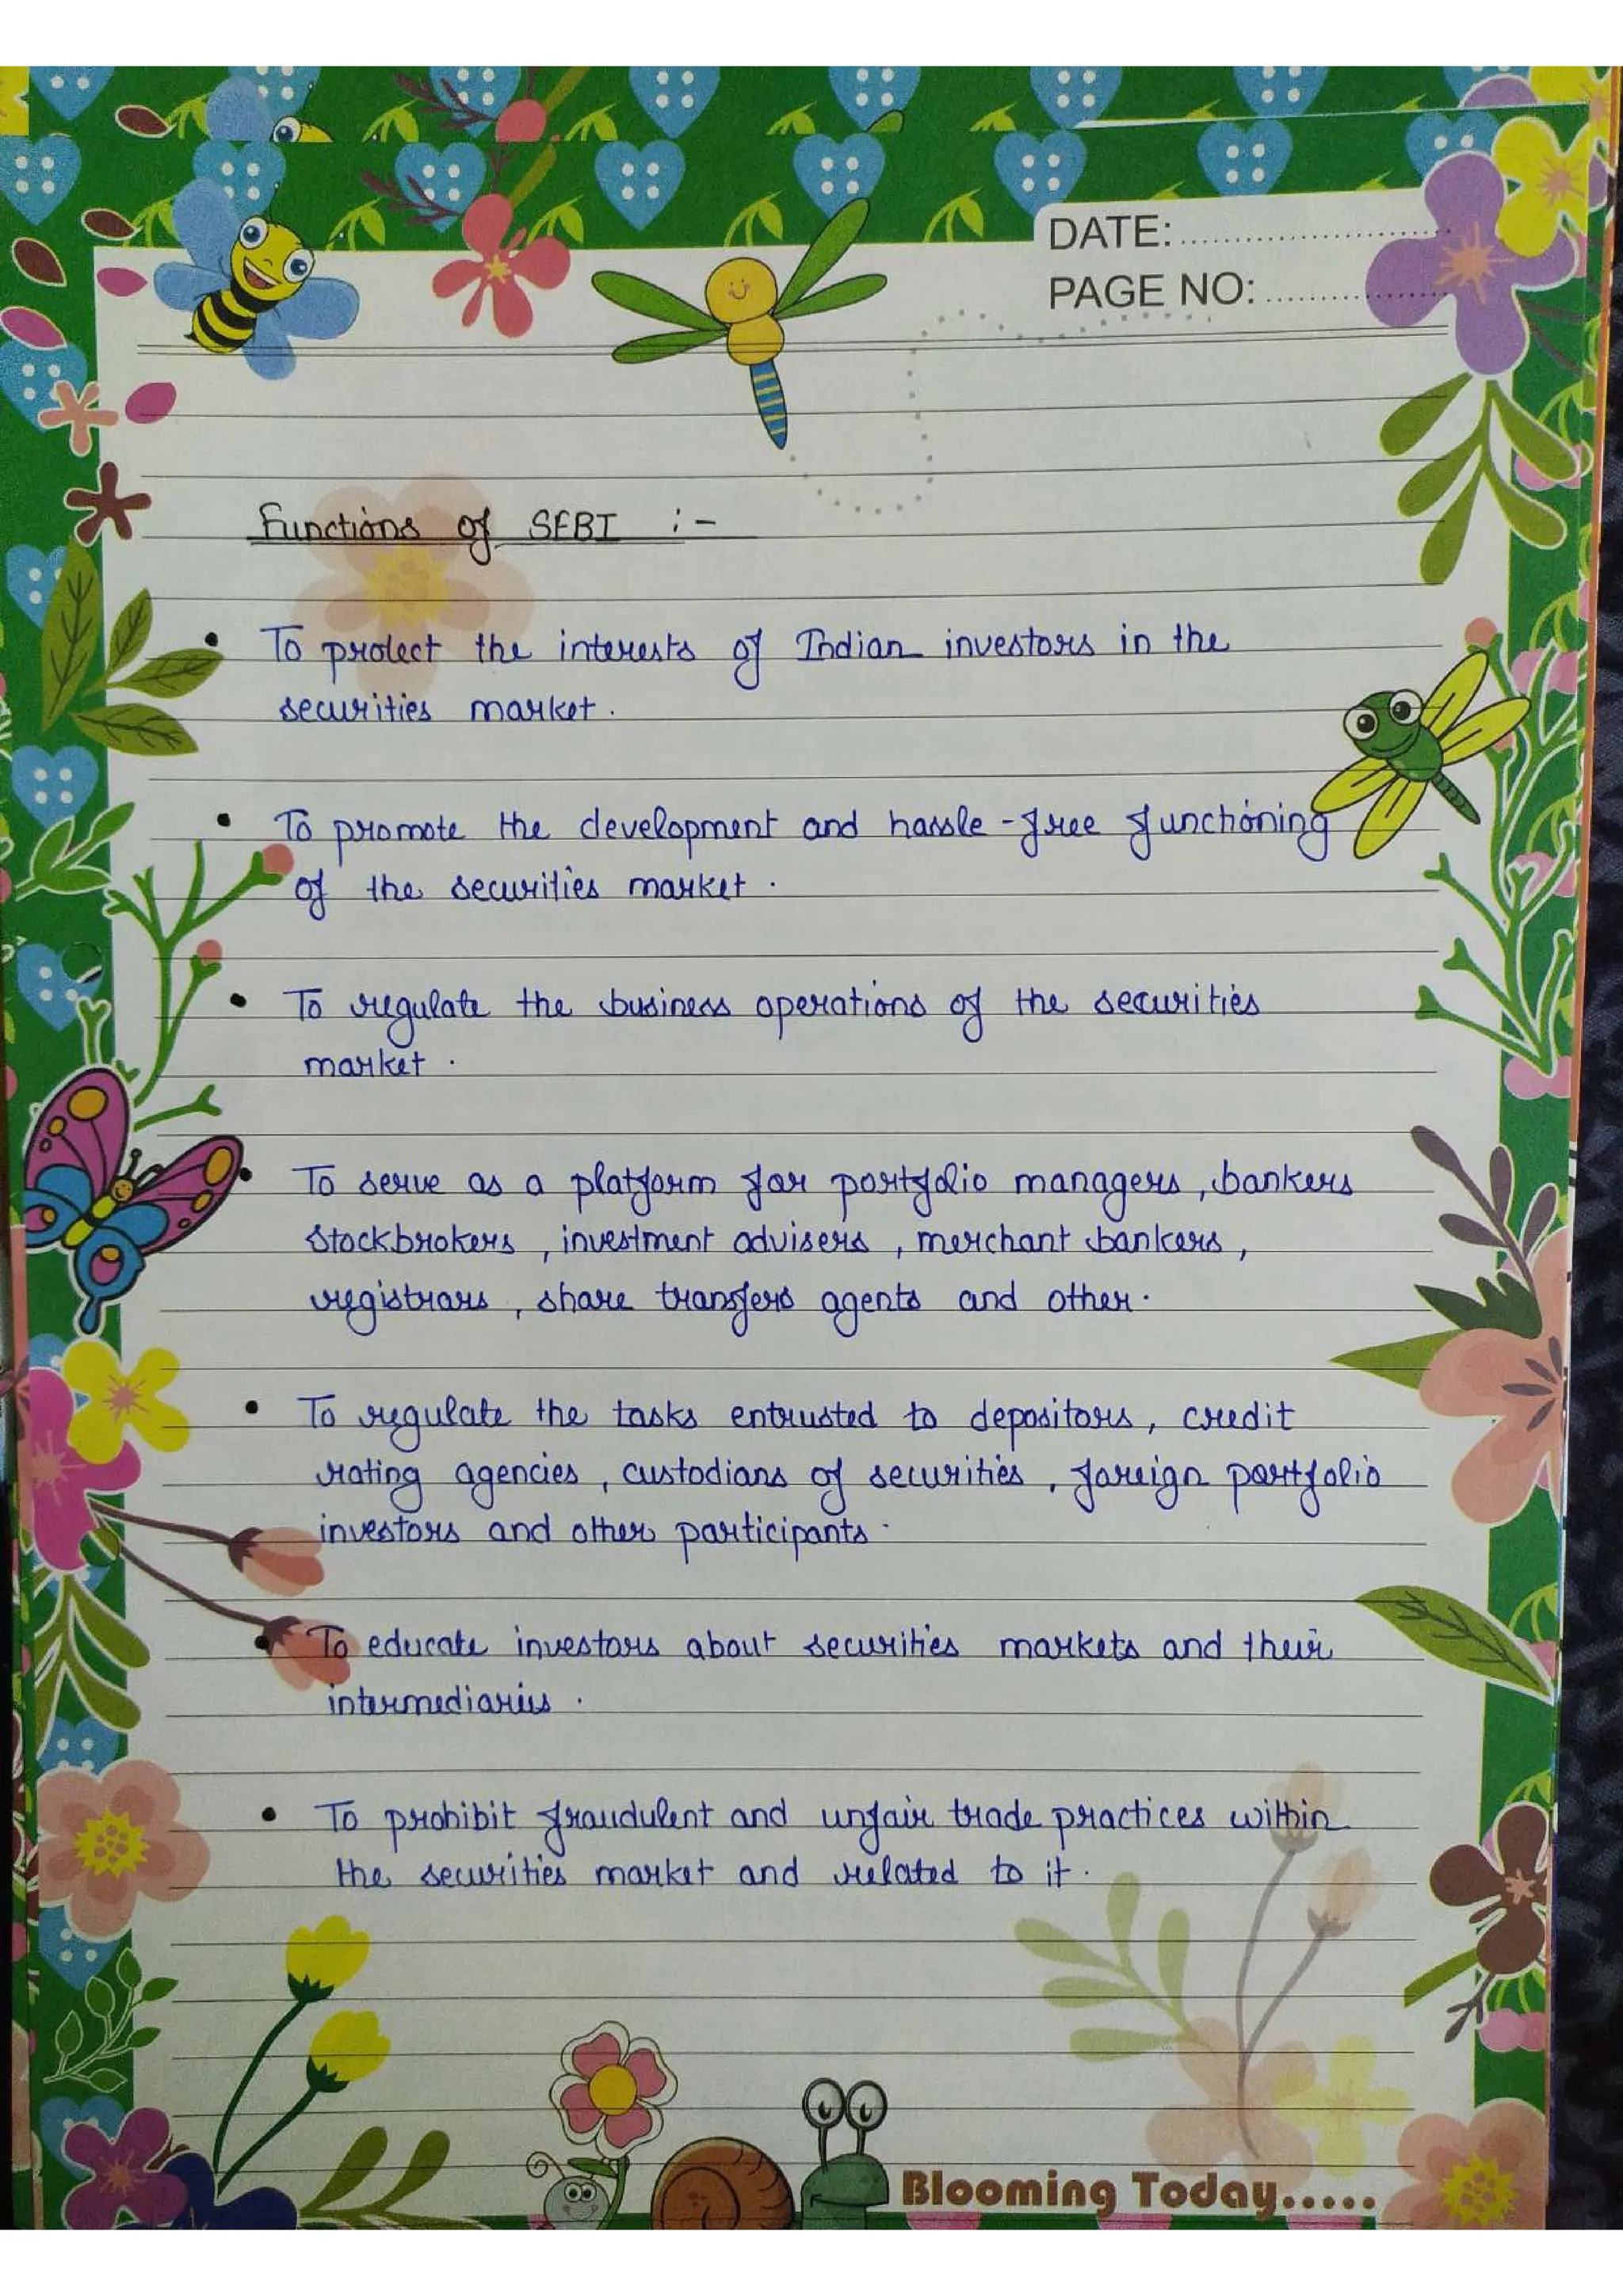 DATE:..........................
PAGE NO:..................
Functions of SEBI :-
• To protect the interests of Indian investors in the
securities market.
• To promote the development and hassle-free functioning
of the securities market.
• To regulate the business operations of the securities
market.
• To serve as a platform for portfolio managers, bankers
stockbrokers, investment advisers, merchant bankers,
registrars, share transfers agents and other.
• To regulate the tasks entrusted to depositors, credit
rating agencies, custodians of securities, foreign portfolio
investors and other participants.
• To educate investors about securities markets and their
intermediaries.
• To prohibit fraudulent and unfair trade practices within
the securities market and related to it.
Blooming Today.....